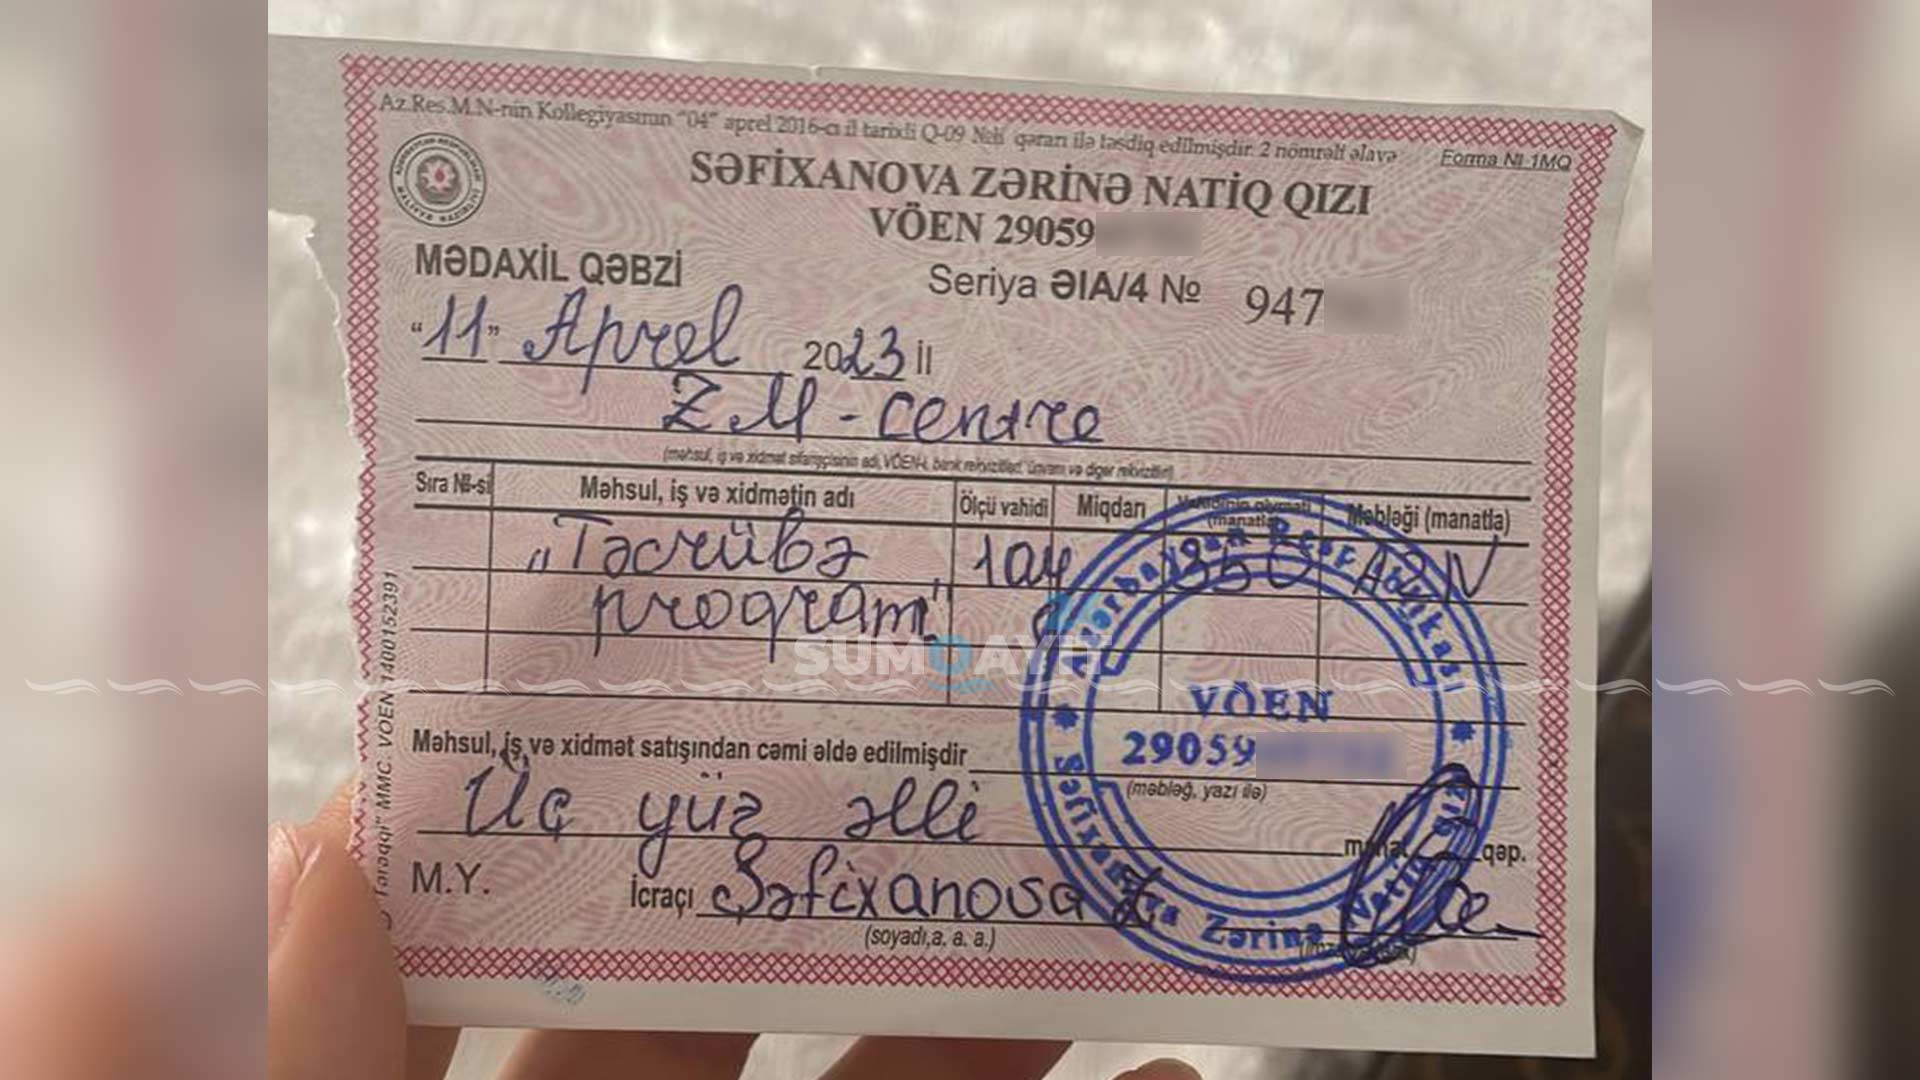 Az.Res.M.N-nin Kollegiyasının "04" aprel 2016-cı il tarixli Q-09 №li qərarı ilə təsdiq edilmişdir. 2 nömrəli əlavə
Forma № 1MQ
SƏFİXANOVA ZƏRİNƏ NATİQ QIZI
VÖEN 29059
MƏDAXİL QƏBZİ
Seriya ƏIA/4 № 947
"11" Aprel 2023 İl
ZM-centre
(məhsul, iş və xidmət sifarişçisinin adı, VÖEN-i, bank rekvizitləri, ünvanı və digər rekvizitləri)
Sıra №-si Məhsul, iş və xidmətin adı Ölçü vahidi Miqdarı (manatla) Məbləği (manatla)
"Təcrübə 1 ay 350 AZN
program"
SUMQAYIT
Məhsul, iş və xidmət satışından cəmi əldə edilmişdir
(məbləğ, yazı ilə)
Üç yüz əlli
manat qəp.
M.Y. İcraçı Səfixanova Z
(soyadı,a. a. a.)
Azərbaycan Respublikası
VÖEN
29059
Səfixanova Zərinə Natiq qızı
"Tərəqqi" MMC. VÖEN 1400152391